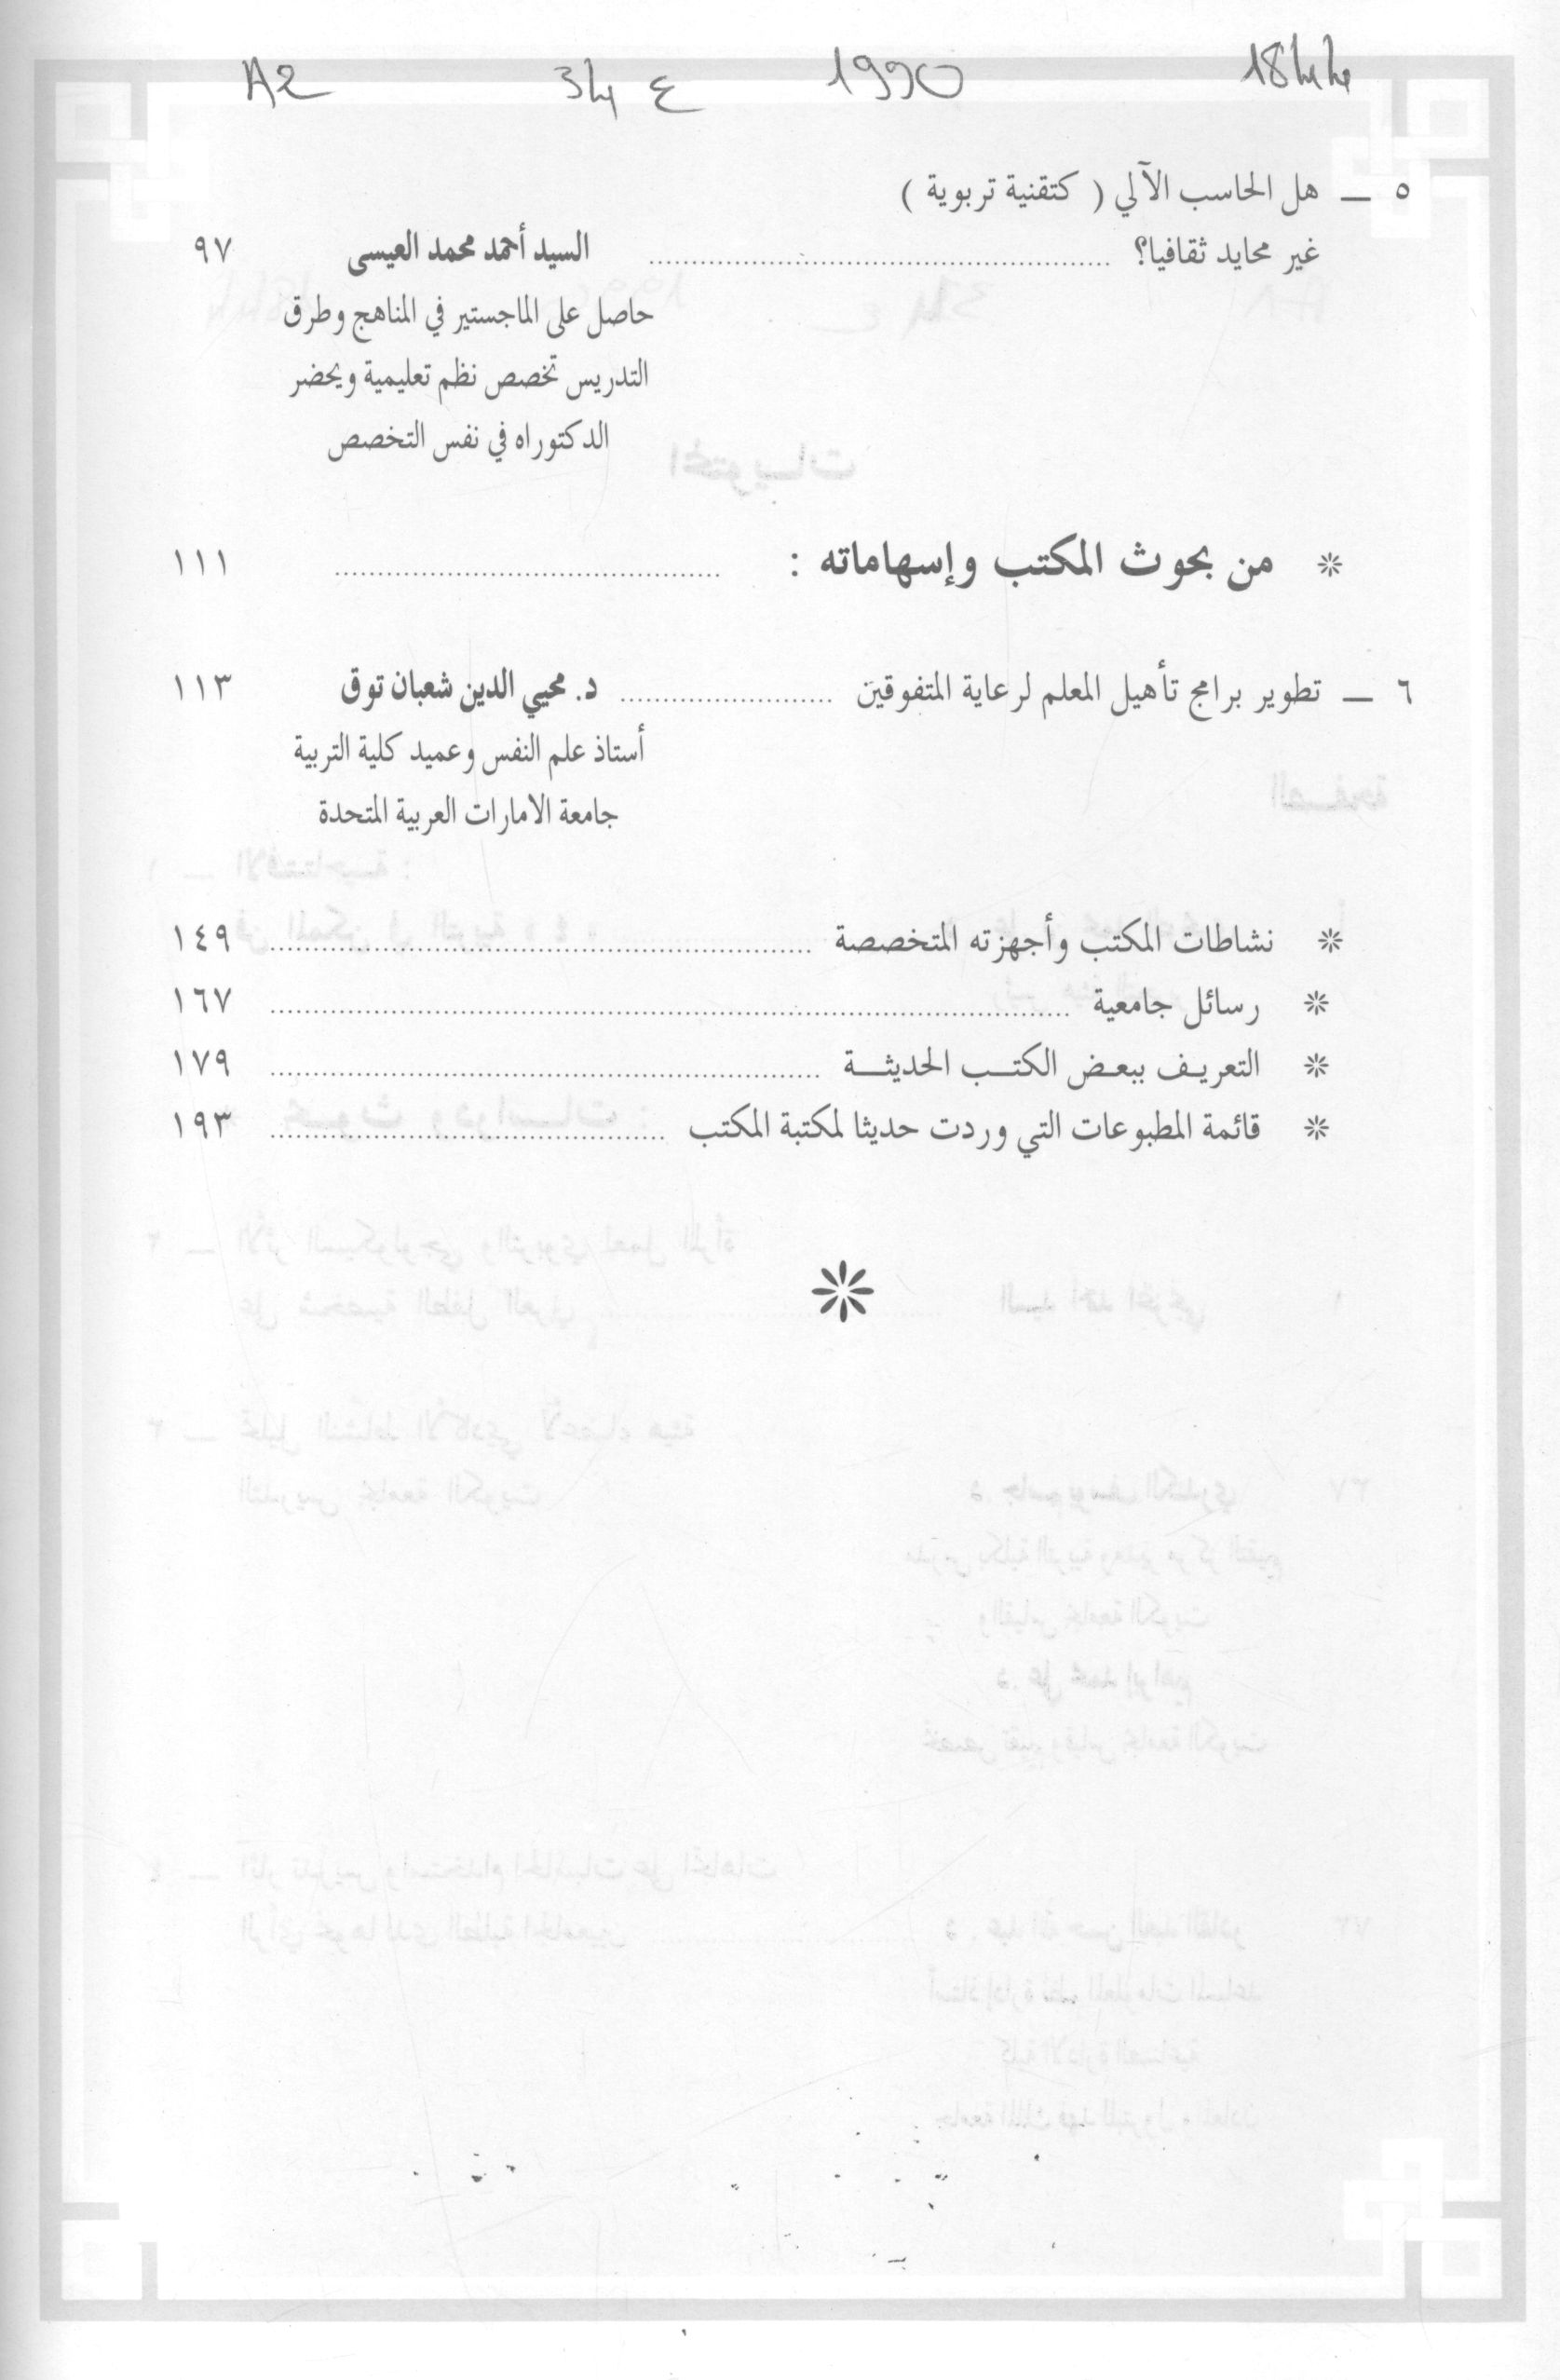 A2 34 ع 1990 1844
٥ ــ هل الحاسب الآلي ( كتقنية تربوية )
غير محايد ثقافيا؟ ........................ السيد أحمد محمد العيسى ٩٧
حاصل على الماجستير في المناهج وطرق
التدريس تخصص نظم تعليمية ويحضر
الدكتوراه في نفس التخصص
* من بحوث المكتب وإسهاماته : ........................ ١١١
٦ ــ تطوير برامج تأهيل المعلم لرعاية المتفوقين ........................ د. محيي الدين شعبان توق ١١٣
أستاذ علم النفس وعميد كلية التربية
جامعة الامارات العربية المتحدة
* نشاطات المكتب وأجهزته المتخصصة ........................ ١٤٩
* رسائل جامعية ........................ ١٦٧
* التعريف ببعض الكتب الحديثة ........................ ١٧٩
* قائمة المطبوعات التي وردت حديثا لمكتبة المكتب ........................ ١٩٣